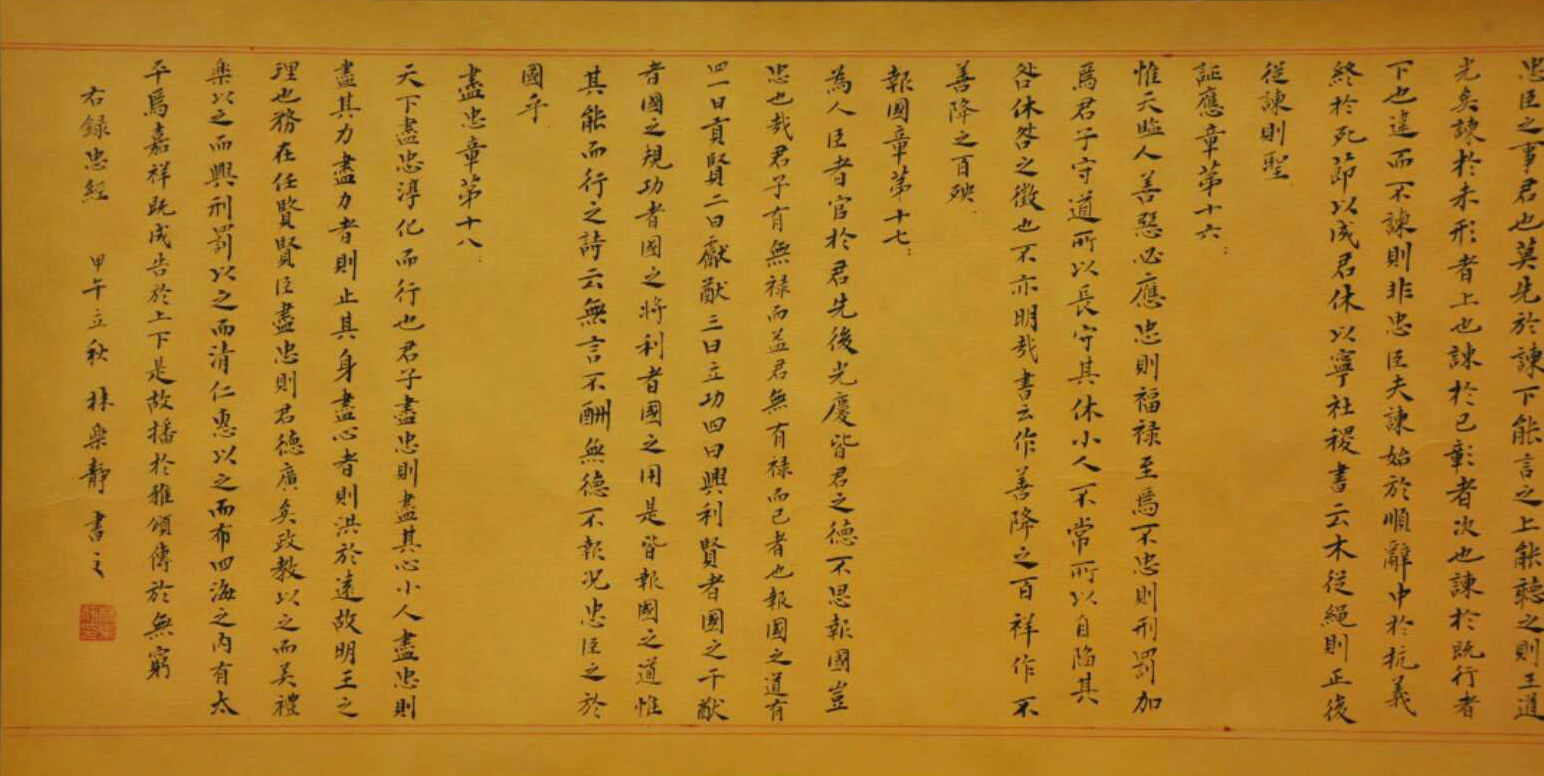 忠臣之事君也莫先於諫下能言之上能聽之則王道
光矣諫於未形者上也諫於已彰者次也諫於既行者
下也違而不諫則非忠臣夫諫始於順辭中於抗義
終於死節以成君休以寧社稷書云木從繩則正後
從諫則聖
証應章第十六
惟天監人善惡必應忠則福祿至焉不忠則刑罰加
焉君子守道所以長守其休小人不常所以自陷其
咎休咎之徵也不亦明哉書云作善降之百祥作不
善降之百殃
報國章第十七
為人臣者官於君先後光慶皆君之德不思報國豈
忠也哉君子有無祿而益君無有祿而已者也報國之道有
四一曰貢賢二曰獻猷三曰立功四曰興利賢者國之干猷
者國之規功者國之將利者國之用是皆報國之道惟
其能而行之詩云無言不酬無德不報況忠臣之於
國乎
盡忠章第十八
天下盡忠淳化而行也君子盡忠則盡其心小人盡忠則
盡其力盡力者則止其身盡心者則洪於遠故明王之
理也務在任賢賢臣盡忠則君德廣矣政教以之而美禮
樂以之而興刑罰以之而清仁惠以之而布四海之內有太
平焉嘉祥既成告於上下是故播於雅頌傳於無窮
右錄忠經 甲午立秋 林樂靜 書之